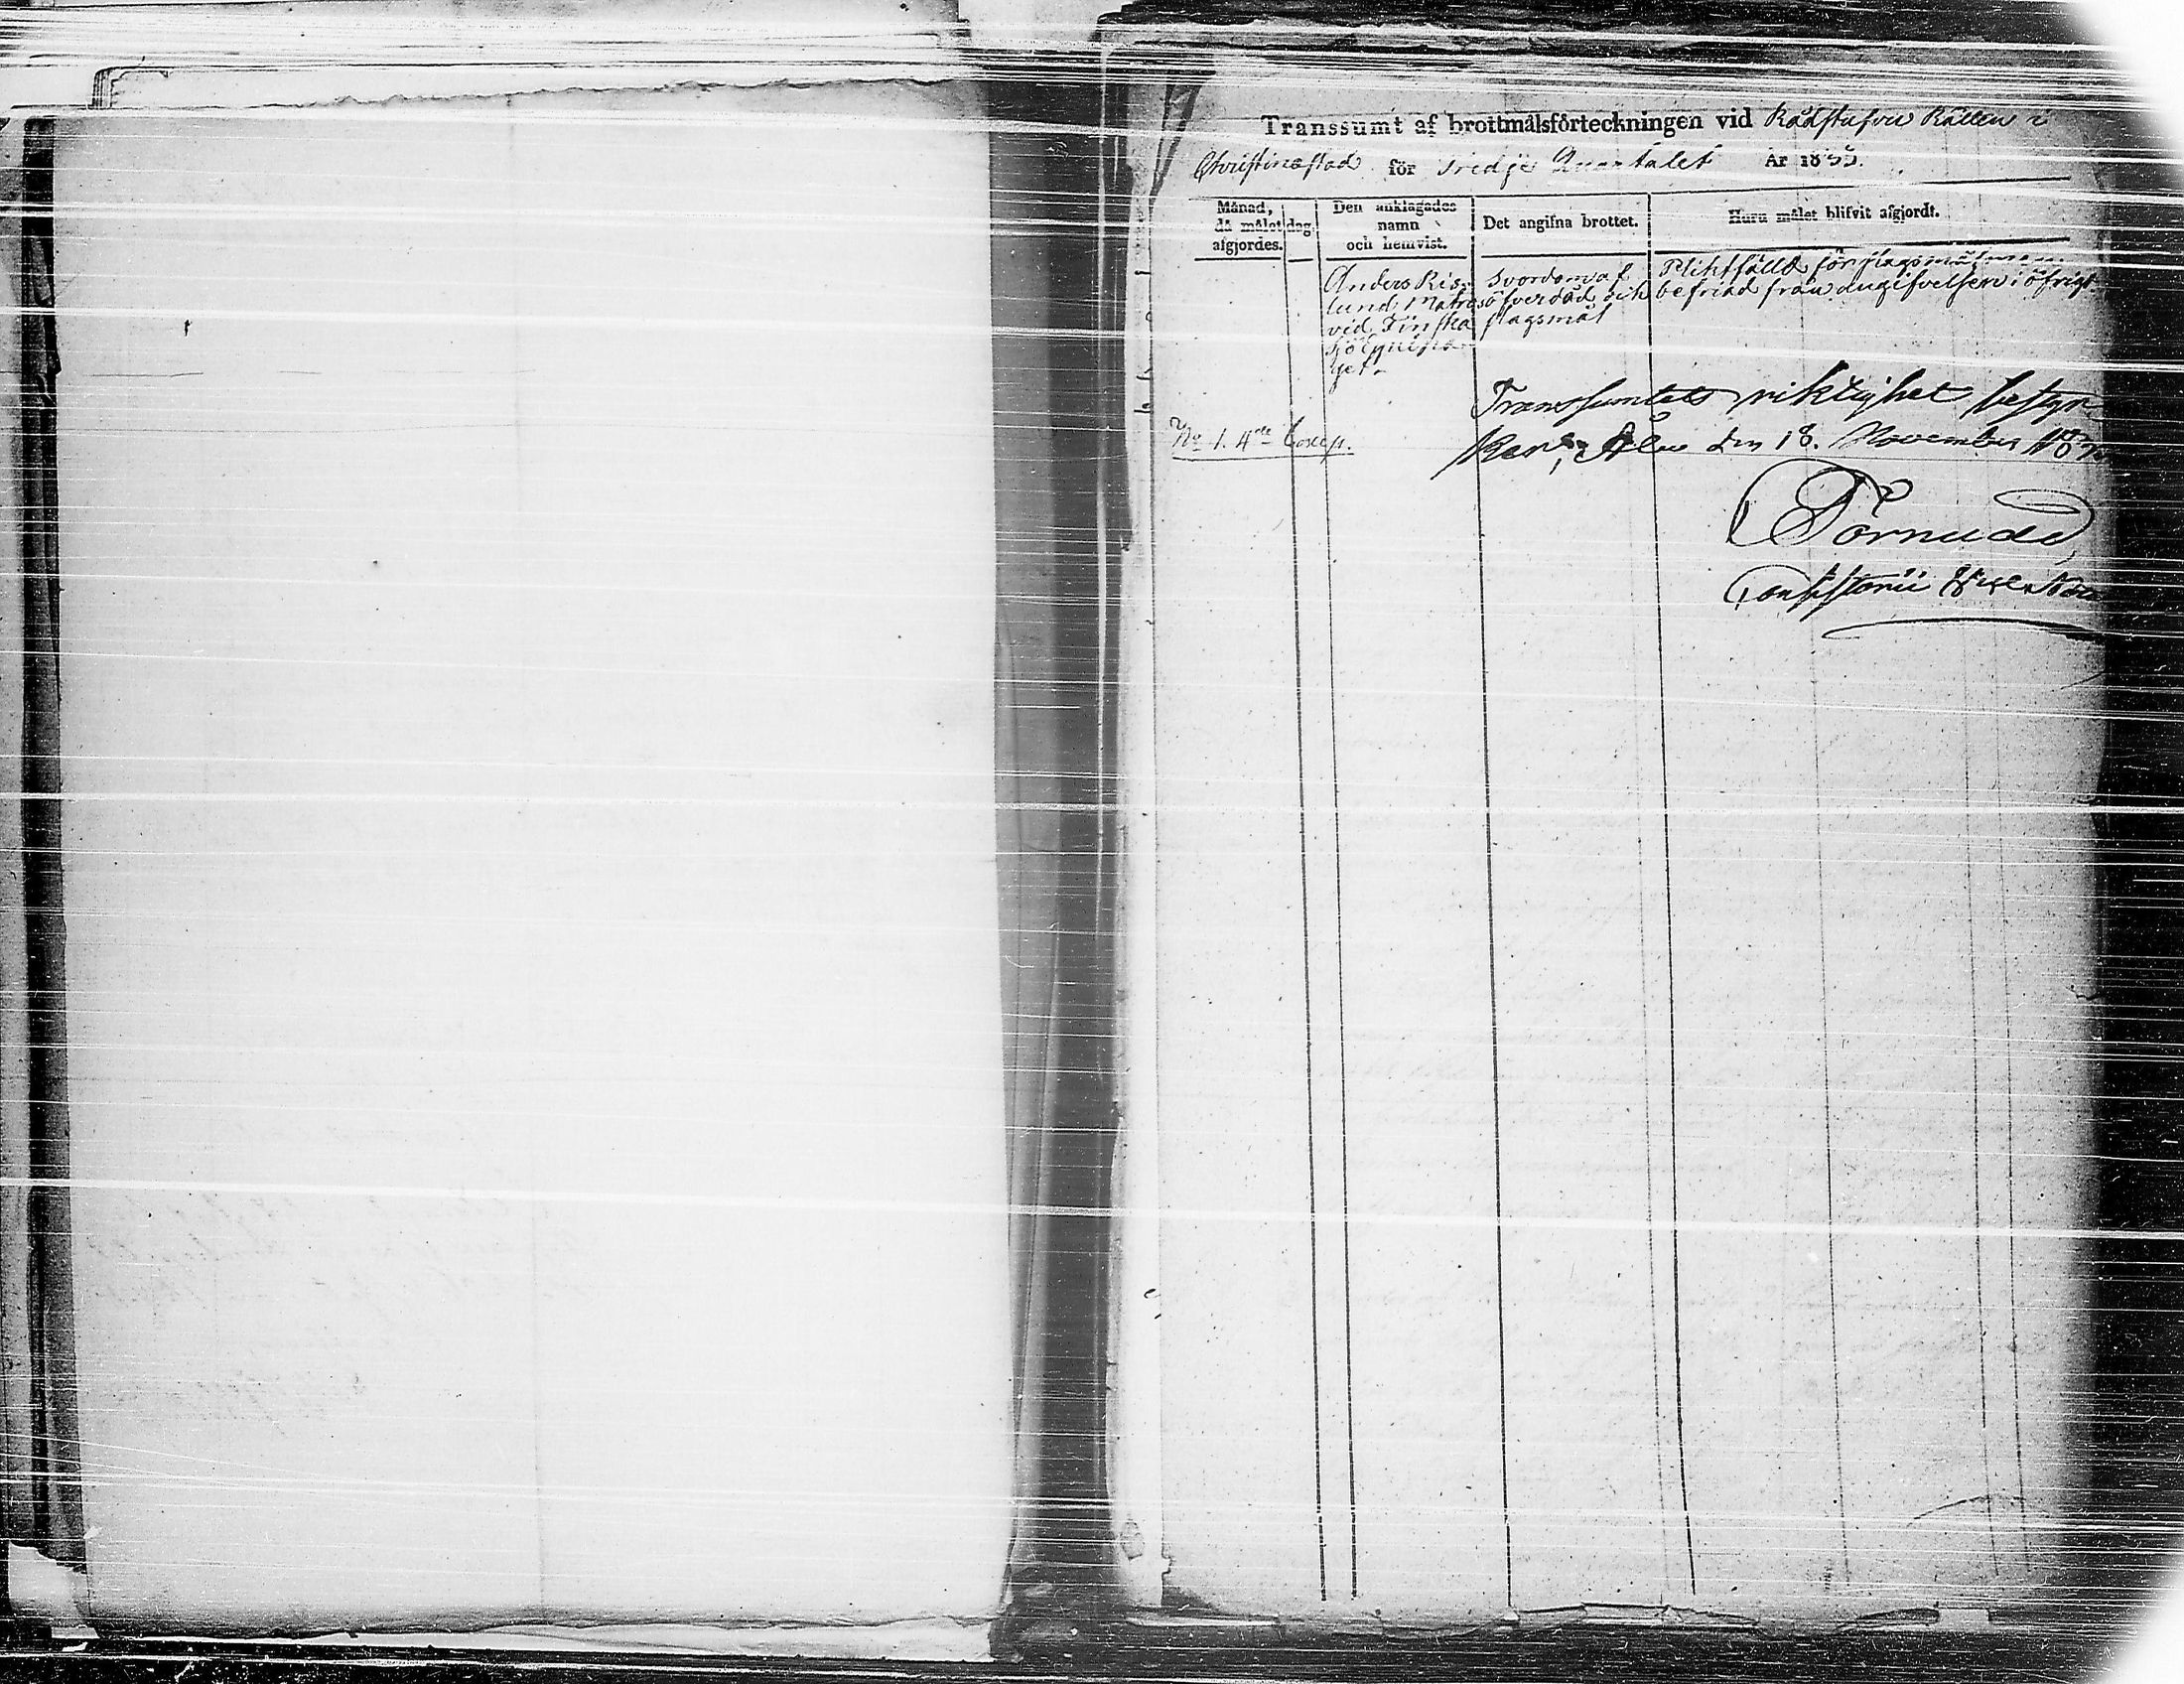 Transsumt af brottmålsförteckningen vid Rådstufvu Rätten i
Christinæstad för Tredje Quartalet År 1855.
Månad, då målet afgjordes.
dag.
Den anklagades namn och hemvist.
Det angifna brottet.
Huru målet blifvit afgjordt.
Anders Ris-
lund Matros
vid Finska
sjöequipa-
get.
Svordom af
öfverdåd och
slagsmål
Pliktfälld för slagsmålen men
befriad från angifvelsen i öfrigt
Transsumtets riktighet bestyr-
ker; Åbo den 18. November 18
No 1. 4de
Törnudd
Consistorii Vice Nota